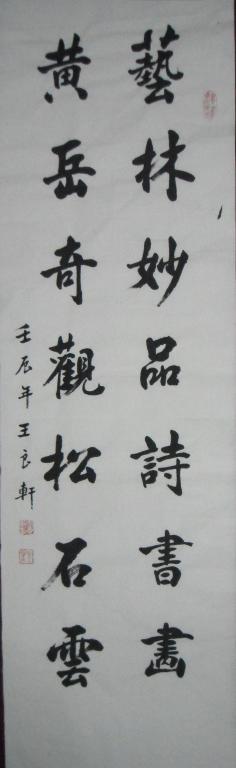 藝林妙品詩書畫
黃岳奇觀松石雲
壬辰年王良軒